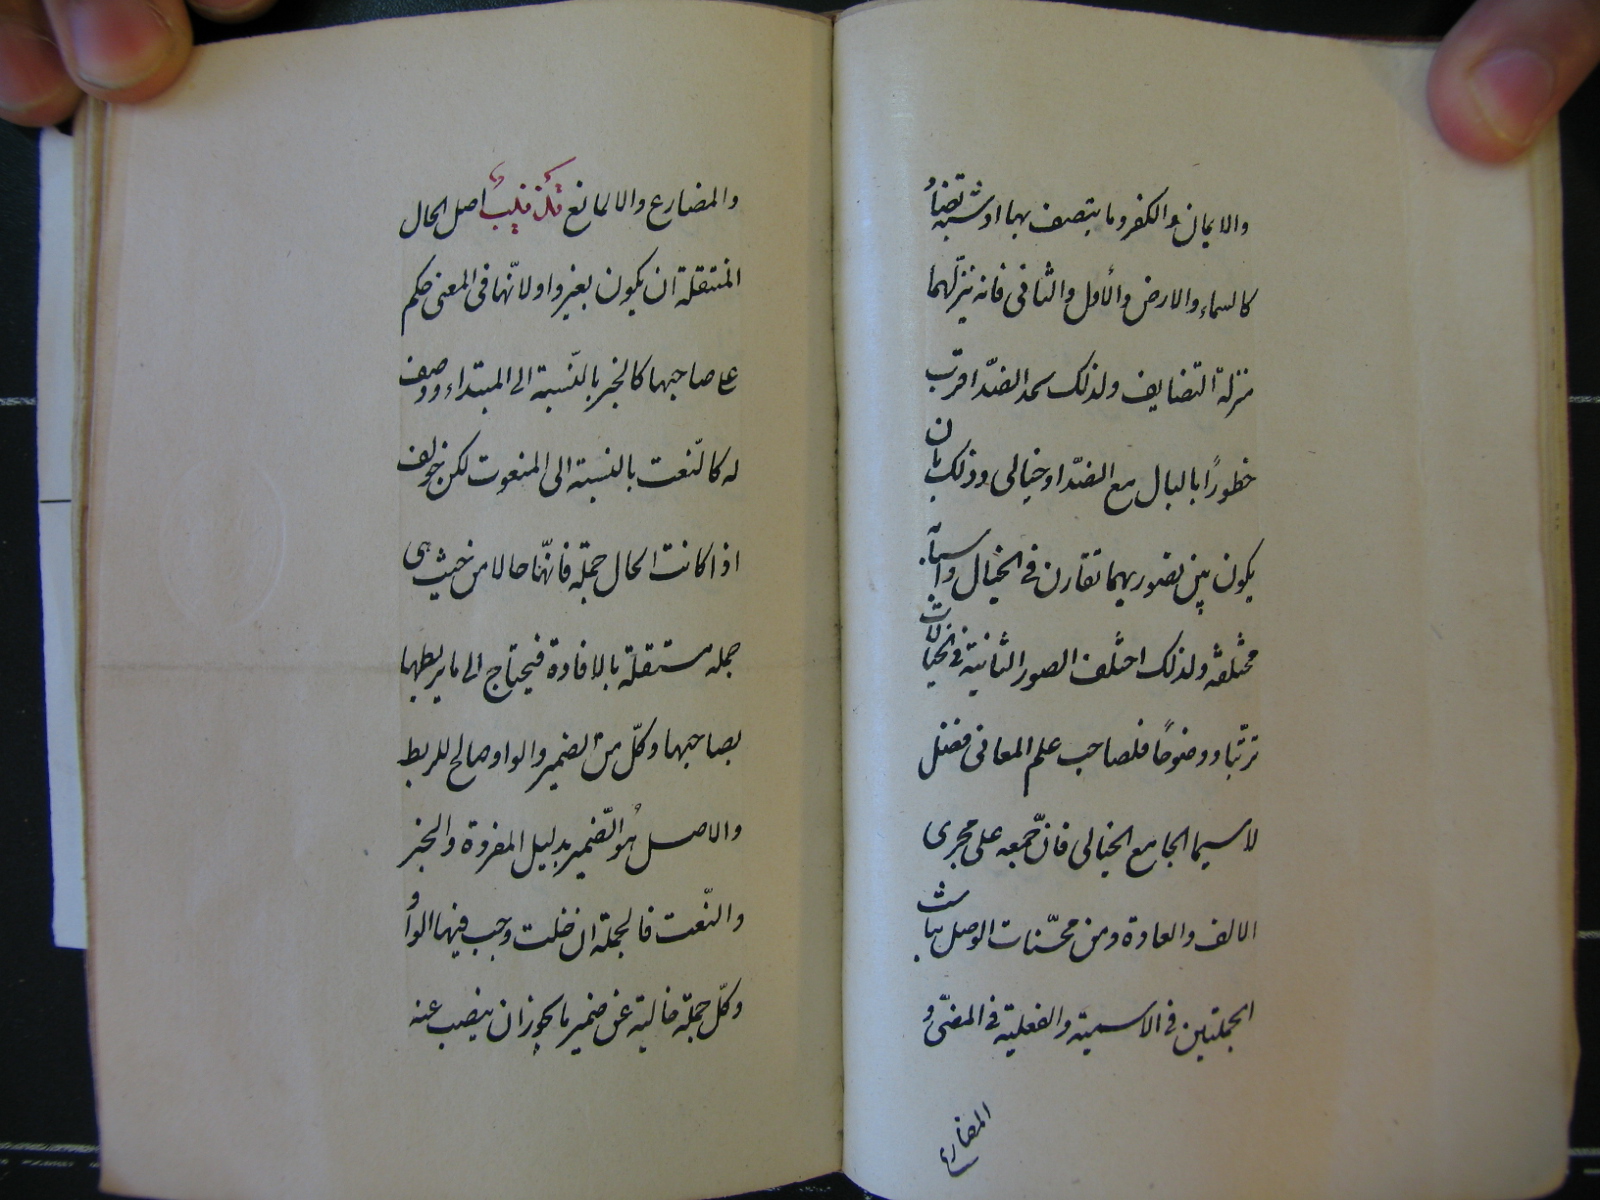 والايمان والكفر وما يتصف بها او شبه تضاد
كالسماء والارض والأول والثانى فانه ينزلهما
منزلة التضايف ولذلك تجد الضدّ اقرب
خطورًا بالبال مع الضدّ او خيالى وذلك بان
يكون بين تصوريهما تقارن فى الخيال واسبابه
مختلفة ولذلك اختلف الصور الثانية فى الخيالات
ترتّبا ووضوحًا فلصاحب علم المعانى فضل
لاسيما الجامع الخيالى فانّ جمعه على مجرى
الالف والعادة ومن محسّنات الوصل تناسب
الجملتين فى الاسمية والفعلية فى المضىّ و
المضارع
والمضارع والا لمانع تذنيب اصل الحال
المنتقلة ان يكون بغير واو لانّها فى المعنى حكم
على صاحبها كالخبر بالنّسبة الى المبتداء ووصف
له كالنّعت بالنسبة الى المنعوت لكن خولف
اذا كانت الحال جملة فانّها حالا من حيث هى
جملة مستقلة بالافادة فيحتاج الى ما يربطها
بصاحبها وكلّ من الضمير والواو صالح للربط
والاصل هُو الضّمير بدليل المفردة والخبر
والنّعت فالجملة ان خلت وجب فيها الواو
وكلّ جملة خالية عن ضمير ما يجوز ان ينصب عنه